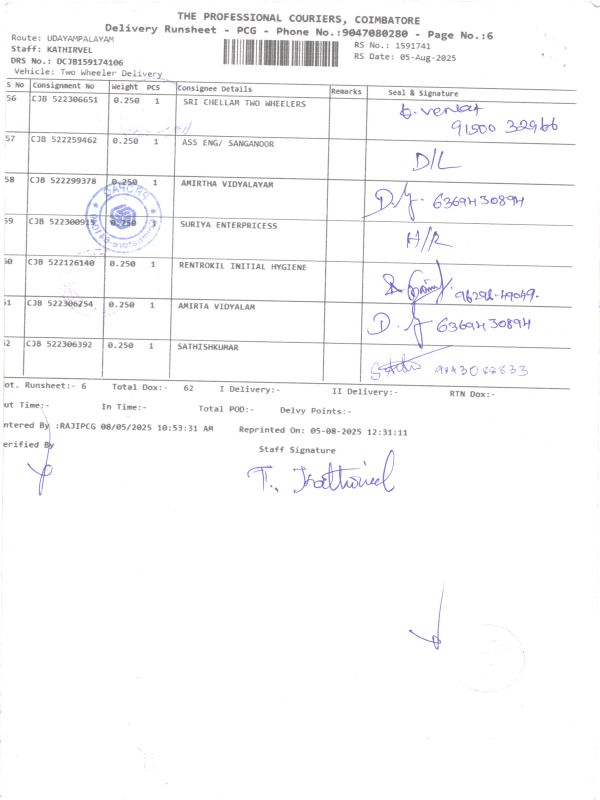 THE PROFESSIONAL COURIERS, COIMBATORE
Delivery Runsheet - PCG - Phone No.:9047080280 - Page No.:6
Route: UDAYAMPALAYAM
RS No.: 1591741
Staff: KATHIRVEL
RS Date: 05-Aug-2025
DRS No.: DCJB159174106
Vehicle: Two Wheeler Delivery
S No Consignment No Weight PCS Consignee Details Remarks Seal & Signature
56 CJB 522306651 0.250 1 SRI CHELLAM TWO WHEELERS
91500 32966
57 CJB 522259462 0.250 1 ASS ENG/ SANGANOOR D/L
58 CJB 522299378 0.250 1 AMIRTHA VIDYALAYAM 63694 30894
59 CJB 522300915 0.250 1 SURIYA ENTERPRICESS H/R
60 CJB 522126140 0.250 1 RENTROKIL INITIAL HYGIENE
51 CJB 522306254 0.250 1 AMIRTA VIDYALAM 63694 30894
2 CJB 522306392 0.250 1 SATHISHKUMAR
ot. Runsheet:- 6 Total Dox:- 62 I Delivery:- II Delivery:- RTN Dox:-
ut Time:- In Time:- Total POD:- Delvy Points:-
ntered By :RAJIPCG 08/05/2025 10:53:31 AM Reprinted On: 05-08-2025 12:31:11
erified By
Staff Signature